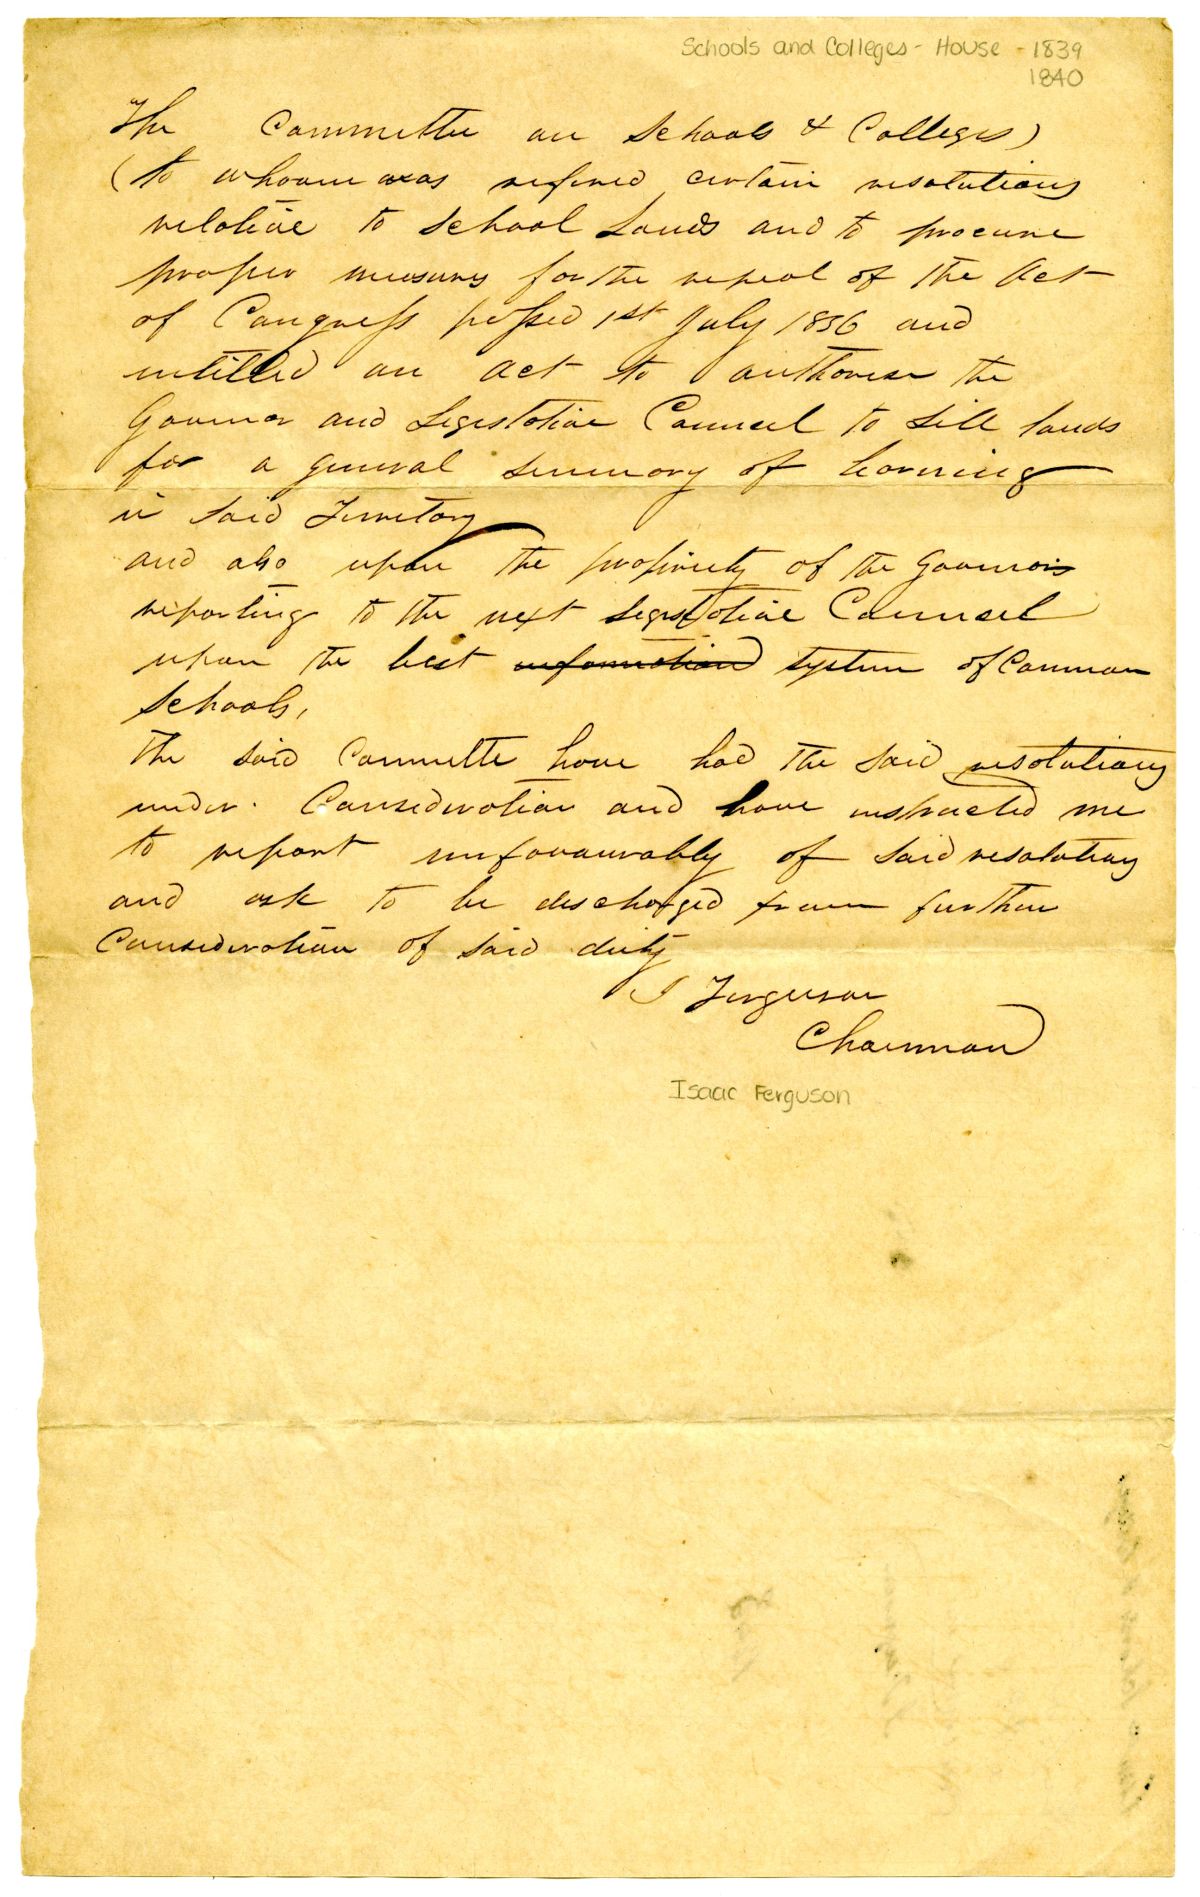 Schools and Colleges - House - 1839
1840
The Committee on Schools & Colleges)
(to whoom was refered certain resolutions
relative to School Lands and to procure
proper measurs for the repeal of the Act
of Congress passed 1st July 1836 and
intitled an act to authorise the
Governor and Legislative Counsel to sell lands
for a general semenary of learning
in said Terretory
and also upon the propriety of the Governors
reporting to the next Legistlative Counsel
upon the best information system of Common
Schools,
the said Committe have had the said resolutions
under Consideration and have instructed me
to report unfavourably of said resolutions
and ask to be discharged from further
Consideration of said duty
I Ferguson
Chairman
Isaac Ferguson